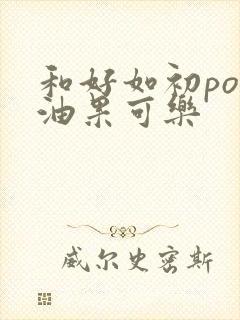 和好如初po
油果可樂
威尔史密斯